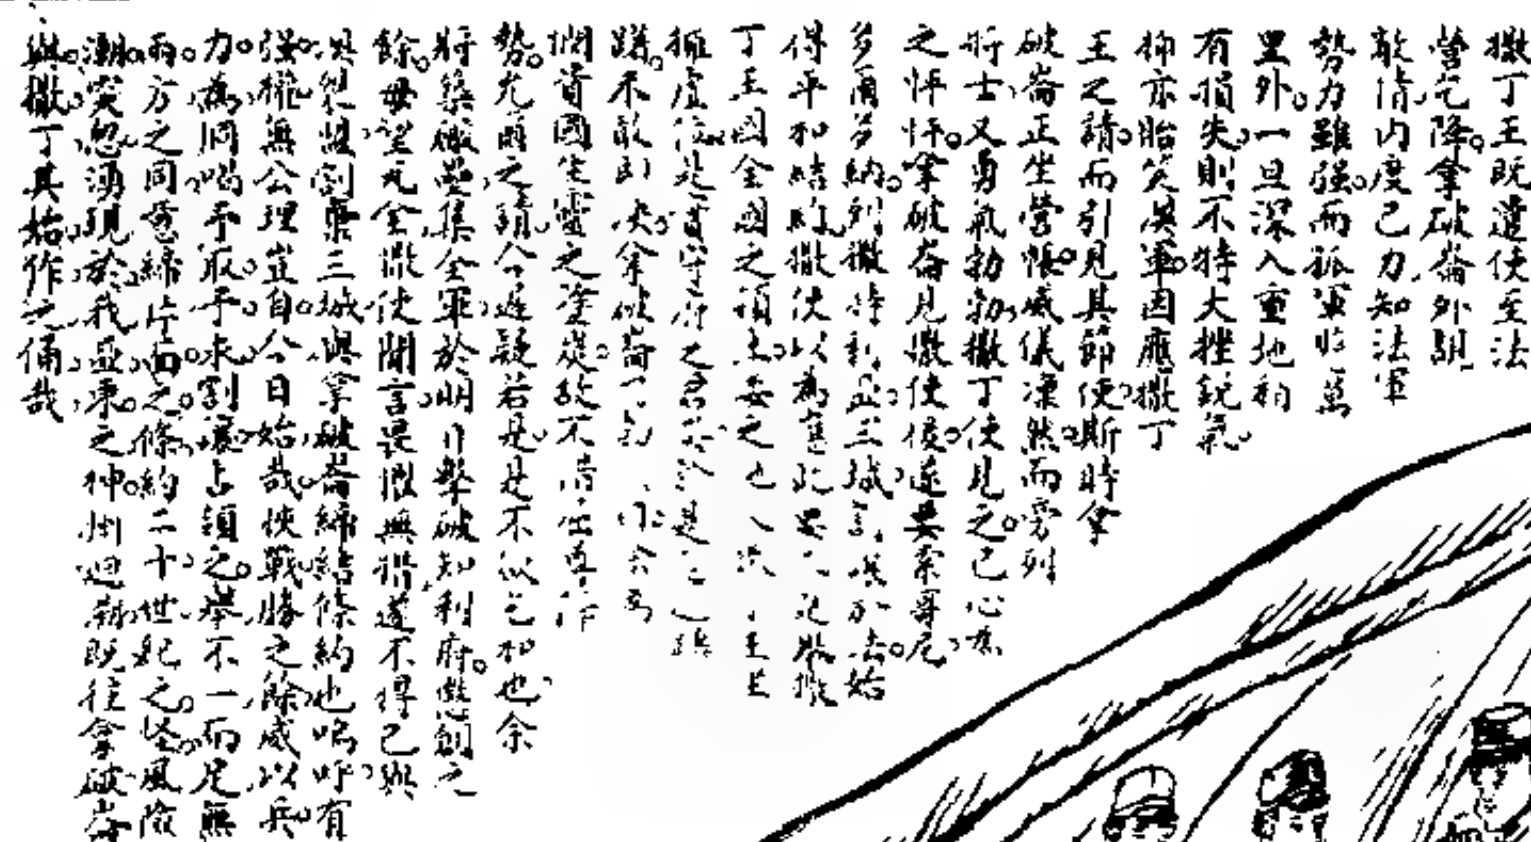 撒丁王既遣使至法
營乞降拿破崙外覘
敵情內度己力知法軍
勢力雖强而孤軍非萬
里外一旦深入重地稍
有損失則不特大挫銳氣
抑亦貽笑異軍因應撒丁
王之請而引見其節使斯時拿
破崙正坐營帳威儀凜然而旁列
將士又勇氣勃勃撒丁使見之已心焉
之怦怦拿破崙見撒使後遂要索哥尼
多爾多納列撒特利亞三城割與於法始
得平和結約撒使以為
丁王國全國之領土
擁虛位是
躊不敢即決拿破崙
憫貴國生靈之塗炭故不
勢允爾之請今遲疑若是是不似乞和也余
將築礮壘集全軍於明日擊破知利府懲創之
餘毋望瓦全撒使聞言畏懼無措遂不得已與
法製盟割棄三城與拿破崙締結條約也嗚呼有
强權無公理豈自今日始哉挾戰勝之餘威以兵
力為恫喝予取予求割壤占領之舉不一而足無
兩方之同意締片面之條約二十世紀之怪風險
潮突忽湧現於我亞東之神州迴溯既往拿破崙
與撒丁其始作之俑哉